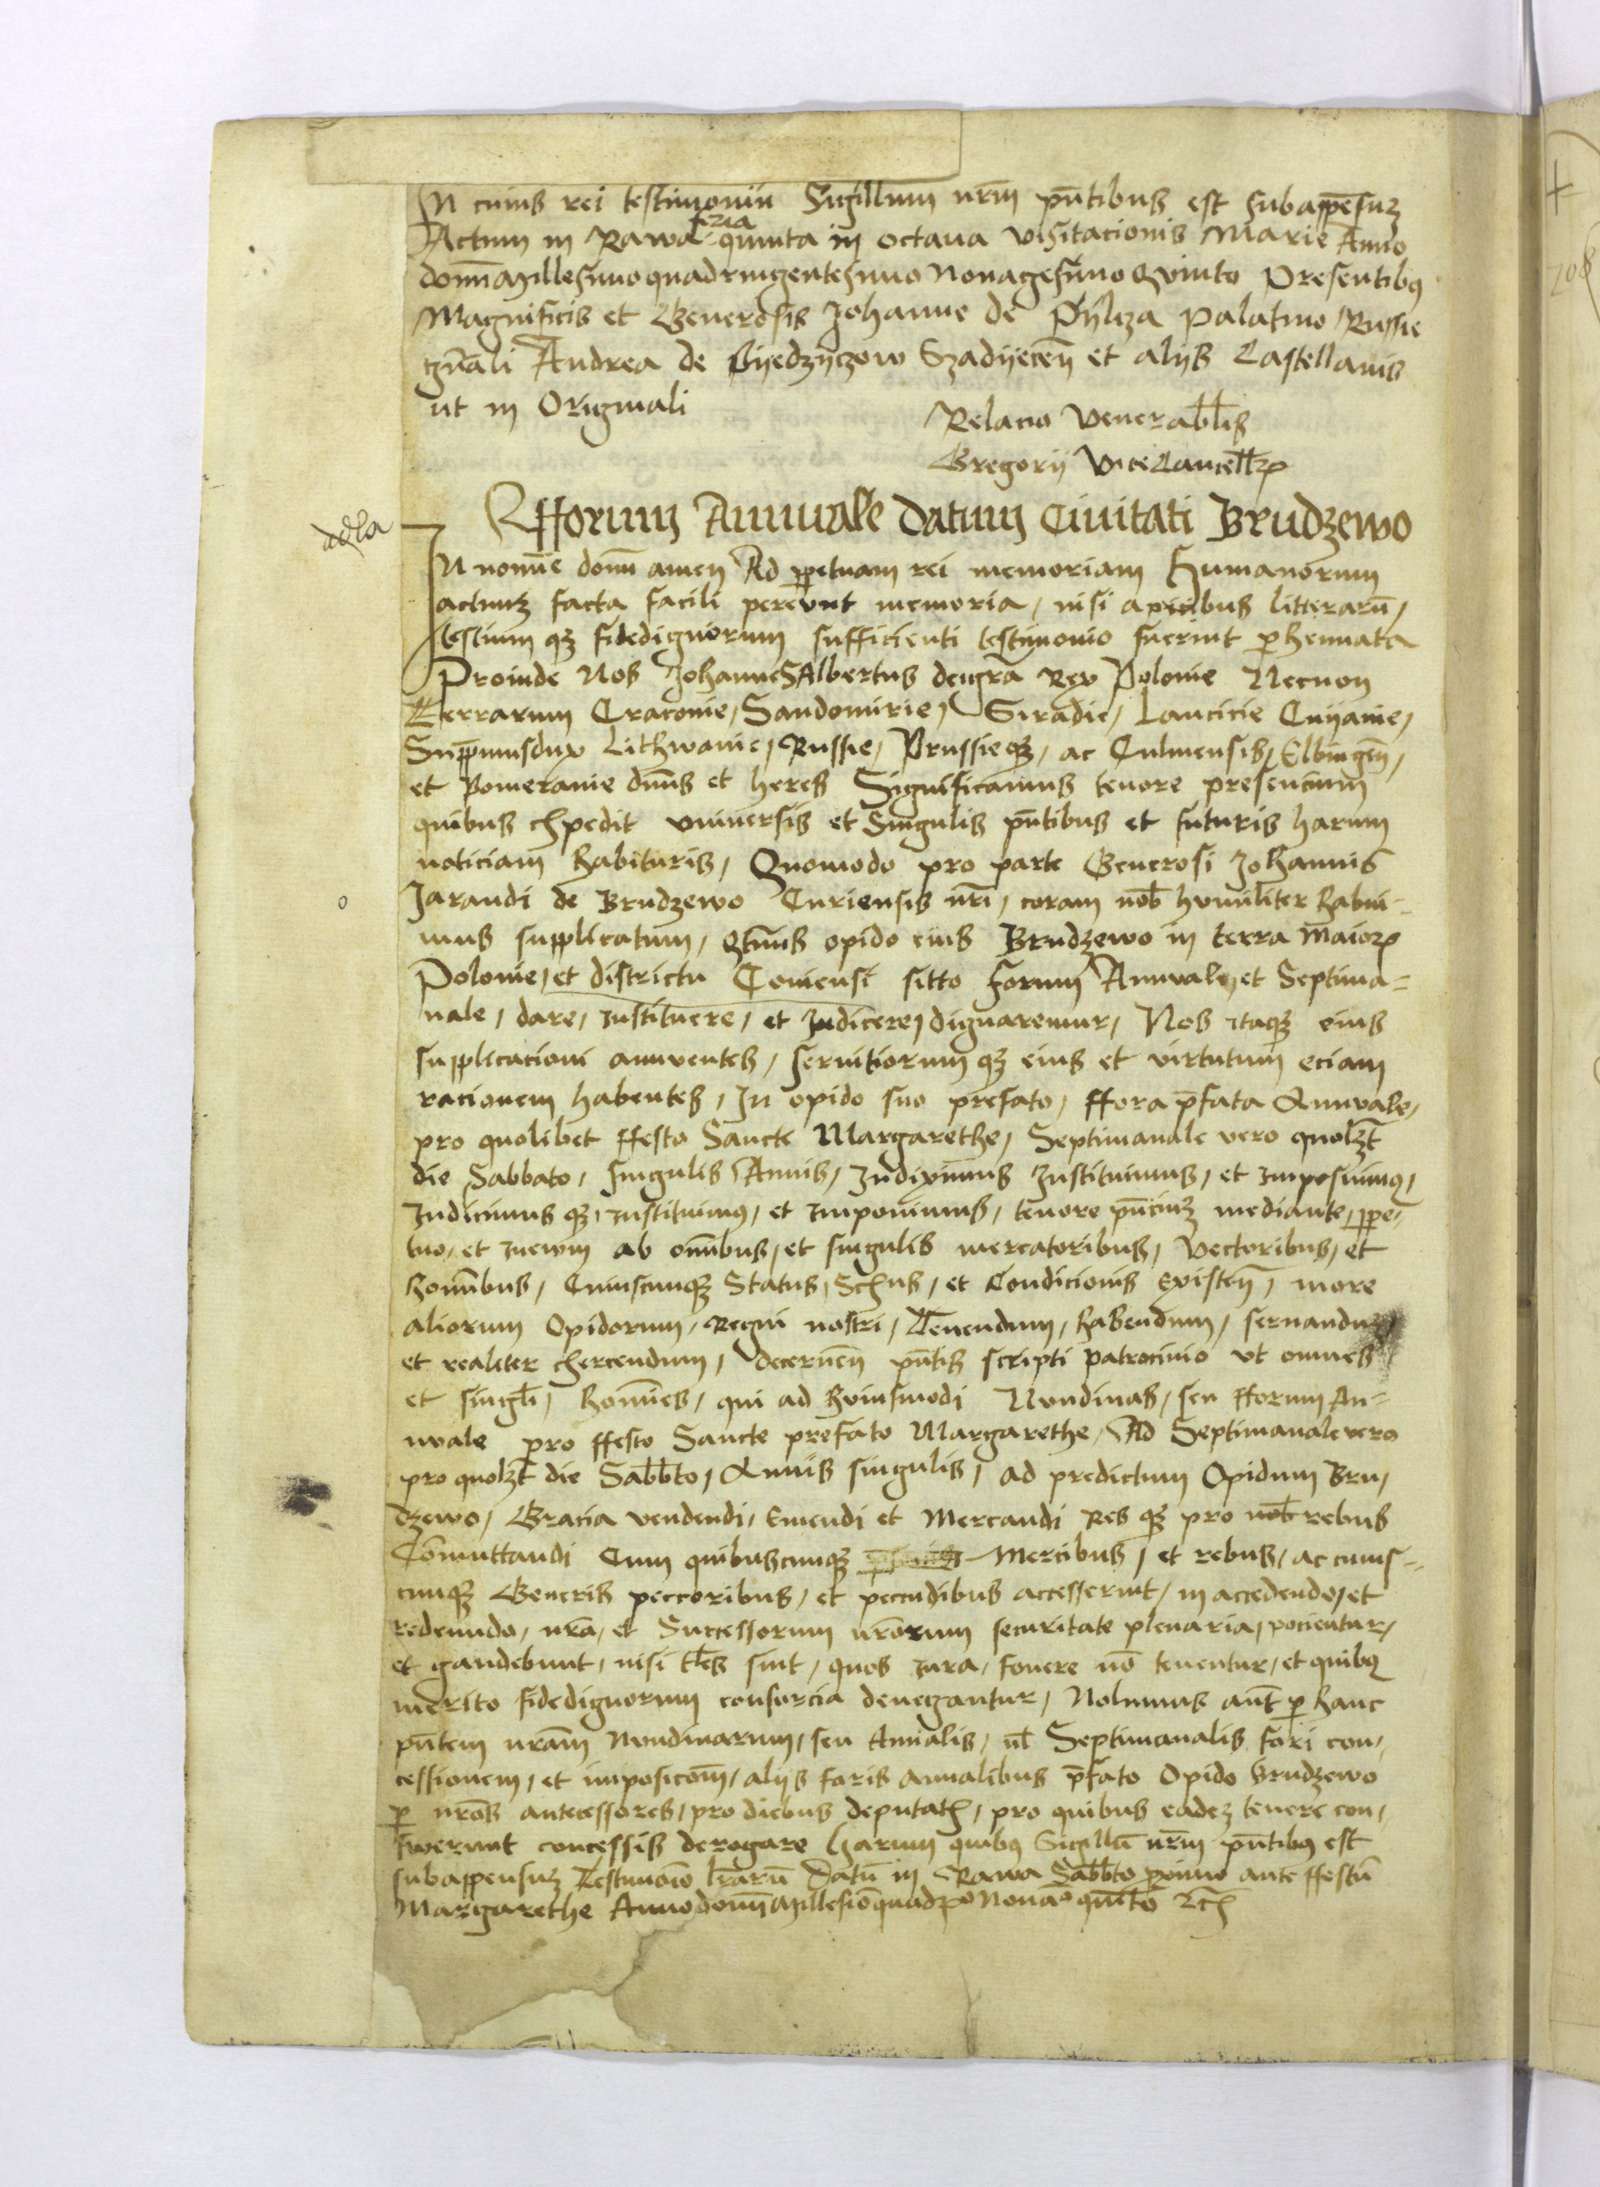 In cuius rei testimoniu Sigillum nrm pntibus est subappesuz
Actum in Rawa feria quinta in octaua visitacionis Marie Anno
domi Millesimo quadringentesimo Nonagesimo Quinto Presentibus
Magnificis et Generosis Johanne de Pijlcza Palatino Russie
gnali Andrea de Byedzyczow Szadijecen et alijs Castellanis
ut in Originali
Relacio Venerablis
Gregorij ViteCancell
fforum Annuale Datum Ciuitati Brudzewo
adla
In nomie domi amen Ad ppetuam rei memoriam Humanorum
actuuz facta facili pereunt memoria, nisi apicibus litteraru,
testium qz fidedignorum sufficienti testimonio fuerint phennata
Proinde Nos Johannes Albertus deigra Rex Polonie Necnon
Terrarum Cracouie, Sandomirie, Siradie, Lancicie Cuijauie,
Suppmusdux Lithwanie, Russie, Prussieqz, ac Culmensis, Elbingen,
et Pomeranie dnus et heres Significamus tenore presencium
quibus expedit vniuersis et Singulis pntibus et futuris harum
noticiam habituris, Quomodo pro parte Generosi Johannis
Jarandi de Brudzewo Curiensis nri, coram nob humiliter habui-
mus supplicatum, qtnus opido eius Brudzewo in terra maior
Polonie, et districtu Coniensi sitto forum Annuale, et Septima-
nale, dare, instituere, et Indicere, dignaremur, Nos itaqz eius
supplicacioni annuentes, seruitiorum qz eius et virtutum eciam
racionem habentes, In opido suo prefato, ffora pfata Annuale,
pro quolibet ffesto Sancte Margarethe, Septimanale vero quolzt
die Sabbato, singulis Annis, Indiximus Instituimus, et imposuimus,
Indicimus qz, instituimus, et imponimus, tenore pnciuz mediante, ppe-
tuo, et ineuum ab omibus, et singulis mercatoribus, Vectoribus, et
homibus, Cuiuscunqz Status, Sexus, et Condicionis existen, more
aliorum Opidorum, Regni nostri, Tenendum, habendum, seruanduz
et realiter exercendum, decernen pntis scripti patrocinio vt omnes
et singli, homies, qui ad huiusmodi Nundinas, seu fforum An-
nuale pro ffesto Sancte prefato Margarethe, Ad Septimanale vero
pro quolzt die Sabbto, Annis singulis, ad predictum Opidum Bru-
dzewo, Gracia vendendi, Emendi et Mercandi Res qz pro rebus
Commuttandi Cum quibuscunqz Mercibus, et rebus, ac cuius-
cunqz Generis peccoribus, et peccudibus accesserint, in accedendo, et
redeundo, nra, et Successorum nrorum securitate plenaria, pocientur,
et gaudebunt, nisi tles sint, quos iura, fouere no tenentur, et quibus
merito fidedignorum consorcia denegantur, Nolumus aut p hanc
pntem nram Nundinarum, seu Annalis, vl Septimanalis fori con-
cessionem, et imposicom, alijs foris annalibus pfato Opido Brudzewo
p nros antecessores, pro diebus deputat, pro quibus eadez tenere con-
sweuerunt concessis derogare Harum quibus Sigillu nrm pntibus est
subappensuz Testimoio lraru Datu in Rawa Sabbto primo ante ffestu
Margarethe Anno domi Millesio quadr Nona quinto Etc